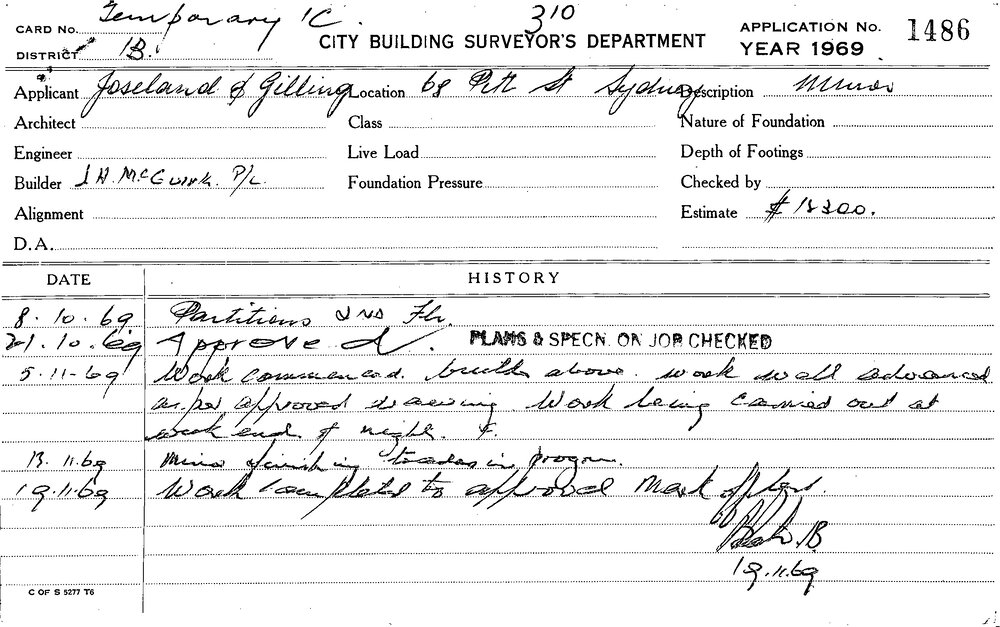 CARD No. Temporary 1C. 310
CITY BUILDING SURVEYOR'S DEPARTMENT
APPLICATION No. 1486
YEAR 1969
DISTRICT 1B.
Applicant Joseland & Gilling Location 68 Pitt St Sydney Description Minor
Architect Class Nature of Foundation
Engineer Live Load Depth of Footings
Builder McGuirk. P/L. Foundation Pressure Checked by
Alignment Estimate
D.A.
DATE HISTORY
8.10.69 Partitions Flr.
21.10.69 Approved. PLANS & SPECN. ON JOB CHECKED
5.11-69 Work commenced. above. work well advanced
as per approved drawing. Work being carried out at
week end. & night.
11.69 Minor finishing trades in
19.11.69 Work completed to approval Mark off plans.
B.
19.11.69
C OF S 5277 T6